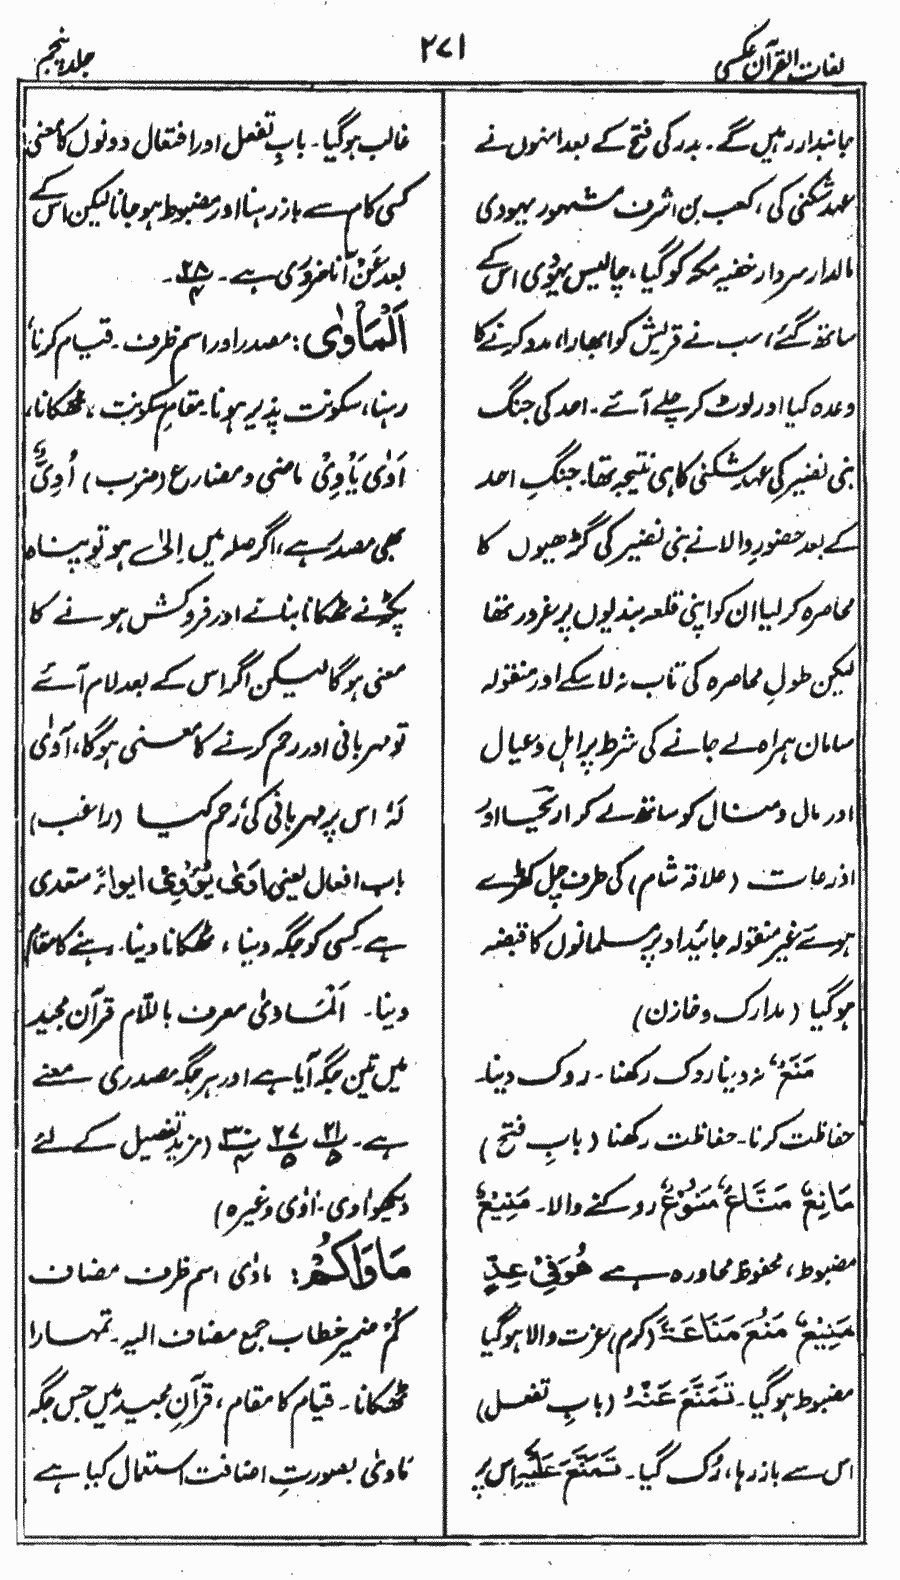 لغات القرآن عکسی
۲۷۱
جلد پنجم
جانبدار رہیں گے۔ بدر کی فتح کے بعد انہوں نے
عہد شکنی کی، کعب بن اشرف مشہور یہودی
مالدار سردار خفیہ مکہ کو گیا، چالیس یہودی اس کے
ساتھ گئے، سب نے قریش کو ابھارا، مدد کرنے کا
وعدہ کیا اور لوٹ کر چلے آئے۔ احد کی جنگ
بنی نضیر کی عہد شکنی کا ہی نتیجہ تھا۔ جنگِ احد
کے بعد حضورِ والا نے بنی نضیر کی گڑھیوں کا
محاصرہ کر لیا ان کو اپنی قلعہ بندیوں پر غرور تھا
لیکن طولِ محاصرہ کی تاب نہ لا سکے اور منقولہ
سامان ہمراہ لے جانے کی شرط پر اہل و عیال
اور مال و منال کو ساتھ لے کر اریحا اور
اذرعات (علاقہ شام) کی طرف چل کھڑے
ہوئے غیر منقولہ جائیداد پر مسلمانوں کا قبضہ
ہو گیا (مدارک و خازن)
مَنَعٌ نہ دینا روک رکھنا۔ روک دینا۔
حفاظت کرنا۔ حفاظت رکھنا (بابِ فتح)
مَانِعٌ مَنَّاعٌ مَنُوْعٌ روکنے والا۔ مَنِیْعٌ
مضبوط، محفوظ محاورہ ہے ھُوَ فِیْ عِزٍّ
مَنِیْعٍ مَنُعَ مَنَاعَۃً (کرم) عزت والا ہو گیا
مضبوط ہو گیا۔ تَمَنَّعَ عَنْہُ (بابِ تفعل)
اس سے باز رہا، رُک گیا۔ تَمَنَّعَ عَلَیْہِ اس پر
غالب ہو گیا۔ بابِ تفعل اور افتعال دونوں کا معنی
کسی کام سے باز رہنا اور مضبوط ہو جانا لیکن اس کے
بعد عَنْ آنا ضروری ہے۔ ۲۸/۴۔
اَلْمَاْوٰی: مصدر اور اسم ظرف۔ قیام کرنا،
رہنا، سکونت پذیر ہونا۔ مقامِ سکونت، ٹھکانا،
اَوٰی یَاْوِیْ ماضی و مضارع (ضرب) اُوِیٌّ
بھی مصدر ہے، اگر صلہ میں اِلیٰ ہو تو پناہ
پکڑنے ٹھکانا بنانے اور فروکش ہونے کا
معنی ہوگا لیکن اگر اس کے بعد لام آئے
تو مہربانی اور رحم کرنے کا معنی ہوگا، اَوٰی
لَہٗ اس پر مہربانی کی رحم کیا (راغب)
باب افعال یعنی اٰوٰی یُؤْوِیْ ایواءً متعدی
ہے۔ کسی کو جگہ دینا، ٹھکانا دینا۔ رہنے کا مقام
دینا۔ اَلْمَاوٰی معرف باللّام قرآن مجید
میں تین جگہ آیا ہے اور ہر جگہ مصدری معنے
ہے۔ ۲۱/۵ ۲۷/۵ ۳۰/۴ (مزید تفصیل کے لئے
دیکھو اوی۔ اوٰی وغیرہ)
مَاْوَاکُمْ: ماوٰی اسم ظرف مضاف
کُمْ ضمیر خطاب جمع مضاف الیہ۔ تمہارا
ٹھکانا۔ قیام کا مقام، قرآنِ مجید میں جس جگہ
ماوٰی بصورتِ اضافت استعمال کیا ہے